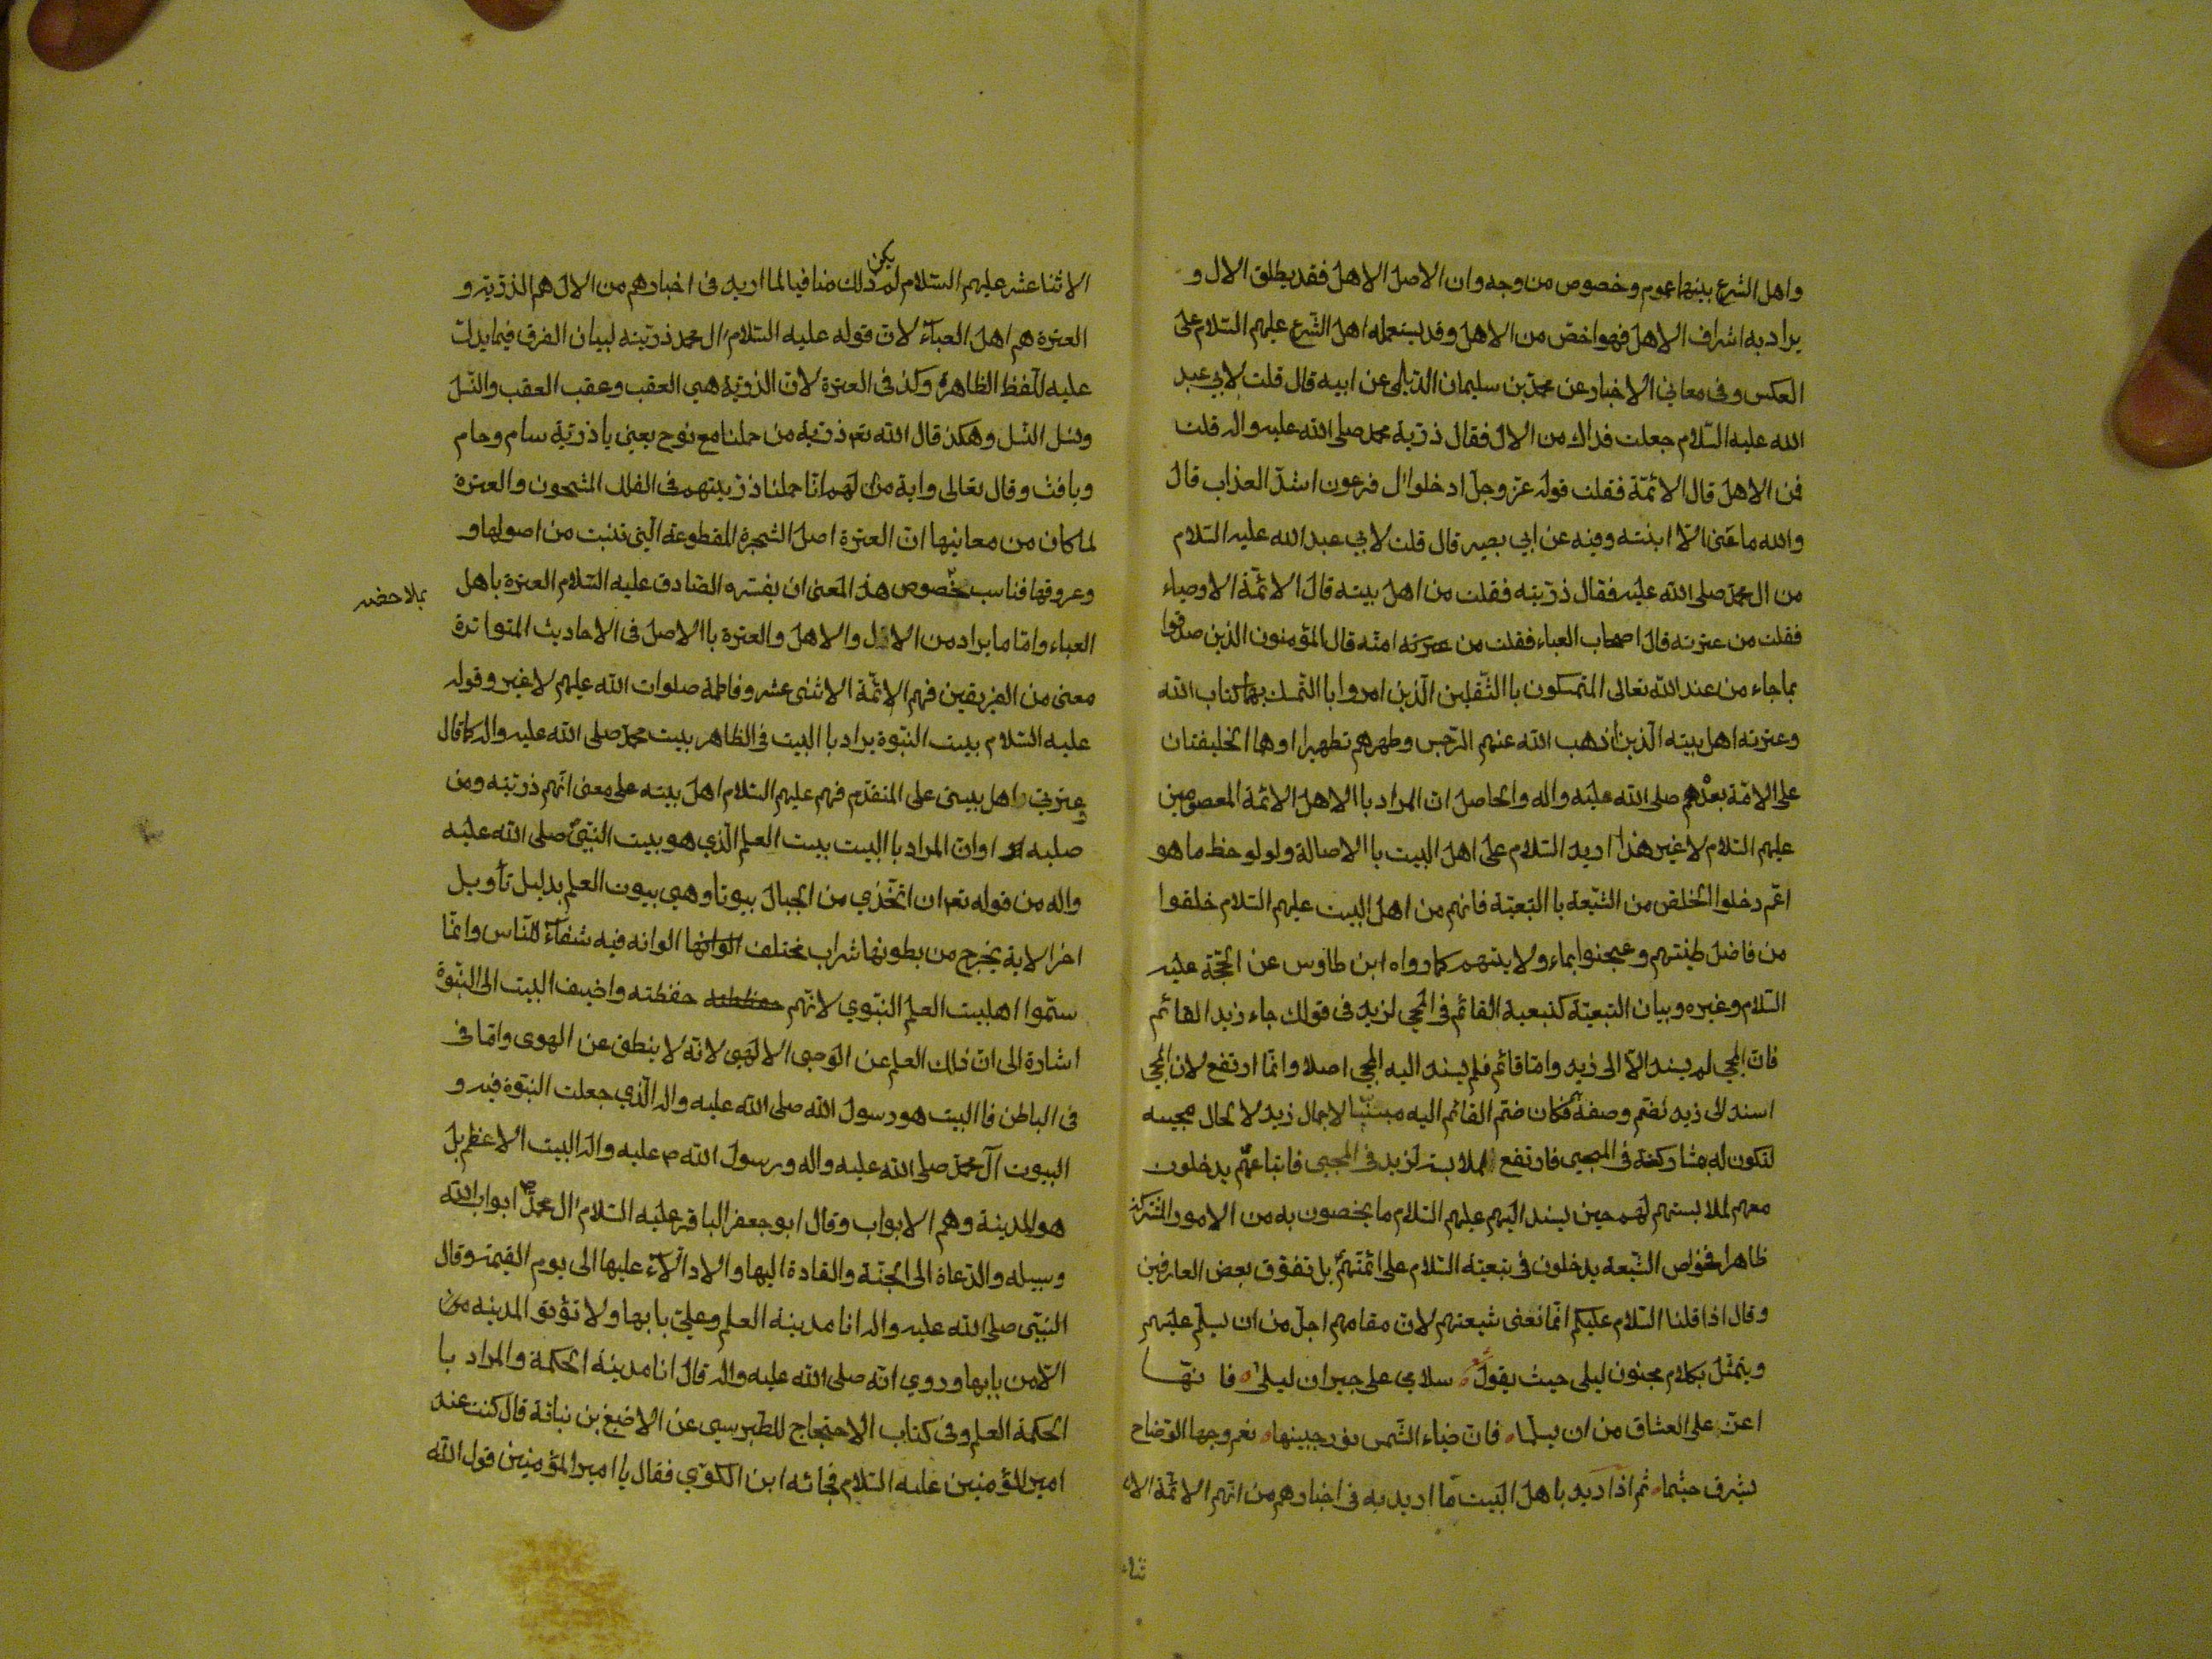 واهل الشرع بينهما عموم وخصوص من وجه وان الاصل الاهل فقد يطلق الال و
يراد به اشراف الاهل فهو اخص من الاهل وقد يستعمله اهل الشرع عليهم السلام على
العكس وفى معاني الاخبار عن محمد بن سليمان الديلمى عن ابيه قال قلت لابي عبد
الله عليه السلام جعلت فداك من الال فقال ذرية محمد صلى الله عليه واله قلت
فمن الاهل قال الائمة فقلت قوله عز وجل ادخلوا ال فرعون اشد العذاب قال
والله ما عنى الا ابنته وفيه عن ابي بصير قال قلت لابي عبد الله عليه السلام
من ال محمد صلى الله عليه فقال ذريته فقلت من اهل بيته قال الائمة الاوصياء
فقلت من عترته قال اصحاب العباء فقلت من امته قال المؤمنون الذين صدقوا
بما جاء من عند الله تعالى المتمسكون باالثقلين الذين امروا باالتمسك بهما كتاب الله
وعترته اهل بيته الذين اذهب الله عنهم الرجس وطهرهم تطهيرا وهما الخليفتان
على الامة بعدهم صلى الله عليه واله والحاصل ان المراد باالاهل الائمة المعصومين
عليهم السلام لا غير هذا اريد السلام على اهل البيت باالاصالة ولو لوحظ ما هو
اعم دخلوا الخلص من الشيعة باالتبعية فانهم من اهل البيت عليهم السلام خلقوا
من فاضل طينتهم وعجنوا بماء ولايتهم كما رواه ابن طاوس عن الحجة عليه
السلام وغيره وبيان التبعية كتبعية القائم فى المجي لزيد فى قولك جاء زيد القائم
فان المجي لم يسند الا الى زيد واما قائم فلم يسند اليه المجي اصلا وانما ارتفع لان المجي
اسند الى زيد وصفة فكان ضم القائم اليه مبينا لاجمال زيد لا لحال مجيئه
لتكون له مشاركة فى المجيى فارتفع لملابسته لزيد فى المجيى فاتباعهم يدخلون
معهم لملابستهم لهم حين يسند اليهم عليهم السلام ما يخصون به من الامور المشتركة
ظاهرا فخواص الشيعة يدخلون فى تبعية السلام على ائمتهم بل تفوق بعض العارفين
وقال اذا قلنا السلام عليكم انما نعنى شيعتهم لان مقامهم اجل من ان يسلم عليهم
ويتمثل بكلام مجنون ليلى حيث يقول شعر سلامي على جيران ليلى فانها
اعز على العشاق من ان يسلما فان ضياء الشمس نور جبينها نعم وجهها الوضاح
يشرق حيثما ثم اذا اريد باهل البيت ما اريد به فى اخبارهم من انهم الائمة الا
ثناء
الاثنا عشر عليهم السلام لم يكن ذلك منافيا لما اريد فى اخبارهم من الال هم الذرية و
العترة هم اهل العباء لان قوله عليه السلام ال محمد ذريته لبيان الفرق فيما يدل
عليه اللفظ الظاهر وكذ فى العترة لان الذرية هى العقب وعقب العقب والنسل
ونسل النسل وهكذ قال الله تعم ذرية من حملنا مع نوح يعني يا ذرية سام وحام
ويافث وقال تعالى واية لهم انا حملنا ذريتهم فى الفلك المشحون والعترة
لما كان من معانيها ان العترة اصل الشجرة المقطوعة التي تنبت من اصولها و
وعروقها فناسب خصوص هذ المعنى ان يفسره الصادق عليه السلام العترة باهل
بملاحضه
العباء واما ما يراد من الال والاهل والعترة باالاصل فى الاحاديث المتواترة
معنى من الفريقين فهم الائمة الاثنى عشر وفاطمة صلوات الله عليهم لا غير وقوله
عليه السلام بيت النبوة يراد باالبيت فى الظاهر بيت محمد صلى الله عليه واله كما قال
وعترتي اهل بيتى على المتقدم فهم عليهم السلام اهل بيته على معنى انهم ذريته ومن
صلبه او ان المراد باالبيت بيت العلم الذي هو بيت النبي صلى الله عليه
واله من قوله تعم ان اتخذي من الجبال بيوتا وهي بيوت العلم بدليل تأويل
اخر الاية يخرج من بطونها شراب مختلف الوانها الوانه فيه شفاء للناس وانما
سموا اهلبيت العلم النبوي لانهم حفظته واضيف البيت الى النبوة
اشارة الى ان ذلك العلم عن الوحى الالهي لانه لا ينطق عن الهوى واما فى
فى الباطن فاالبيت هو رسول الله صلى الله عليه واله الذي جعلت النبوة فيه و
البيوت آل محمد صلى الله عليه واله ورسول الله ص عليه واله البيت الاعظم بل
هو المدينة وهم الابواب وقال ابو جعفر الباقر عليه السلام ال محمد ص ابواب الله
وسبيله والدعاة الى الجنة والقادة اليها والادلاء عليها الى يوم القيمة وقال
النبي صلى الله عليه واله انا مدينة العلم وعلي بابها ولا تؤتو المدينه من
الا من بابها وروي انه صلى الله عليه واله قال انا مدينة الحكمة والمراد با
الحكمة العلم وفى كتاب الاحتجاج للطبرسي عن الاصبغ بن نباتة قال كنت عند
امير المؤمنين عليه السلام فجائه ابن الكوى فقال يا امير المؤمنين قول الله